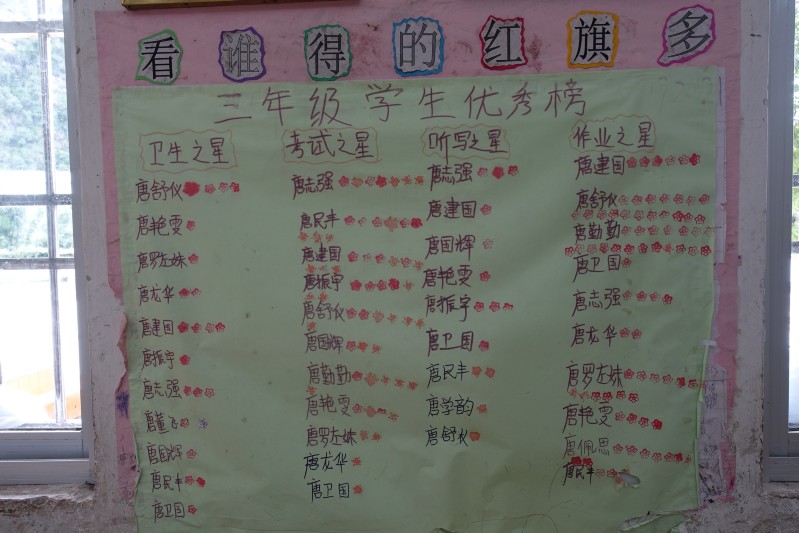 看谁得的红旗多
三年级学生优秀榜
卫生之星
唐舒仪
唐艳雯
唐罗左妹
唐龙华
唐建国
唐振宇
唐志强
唐国辉
唐民丰
唐卫国
考试之星
唐志强
唐民丰
唐建国
唐振宇
唐舒仪
唐国辉
唐勤勤
唐艳雯
唐罗左妹
唐龙华
唐卫国
听写之星
唐志强
唐建国
唐国辉
唐艳雯
唐振宇
唐卫国
唐民丰
唐学韵
唐舒仪
作业之星
唐建国
唐舒仪
唐勤勤
唐卫国
唐志强
唐龙华
唐罗左妹
唐艳雯
唐佩思
唐民丰